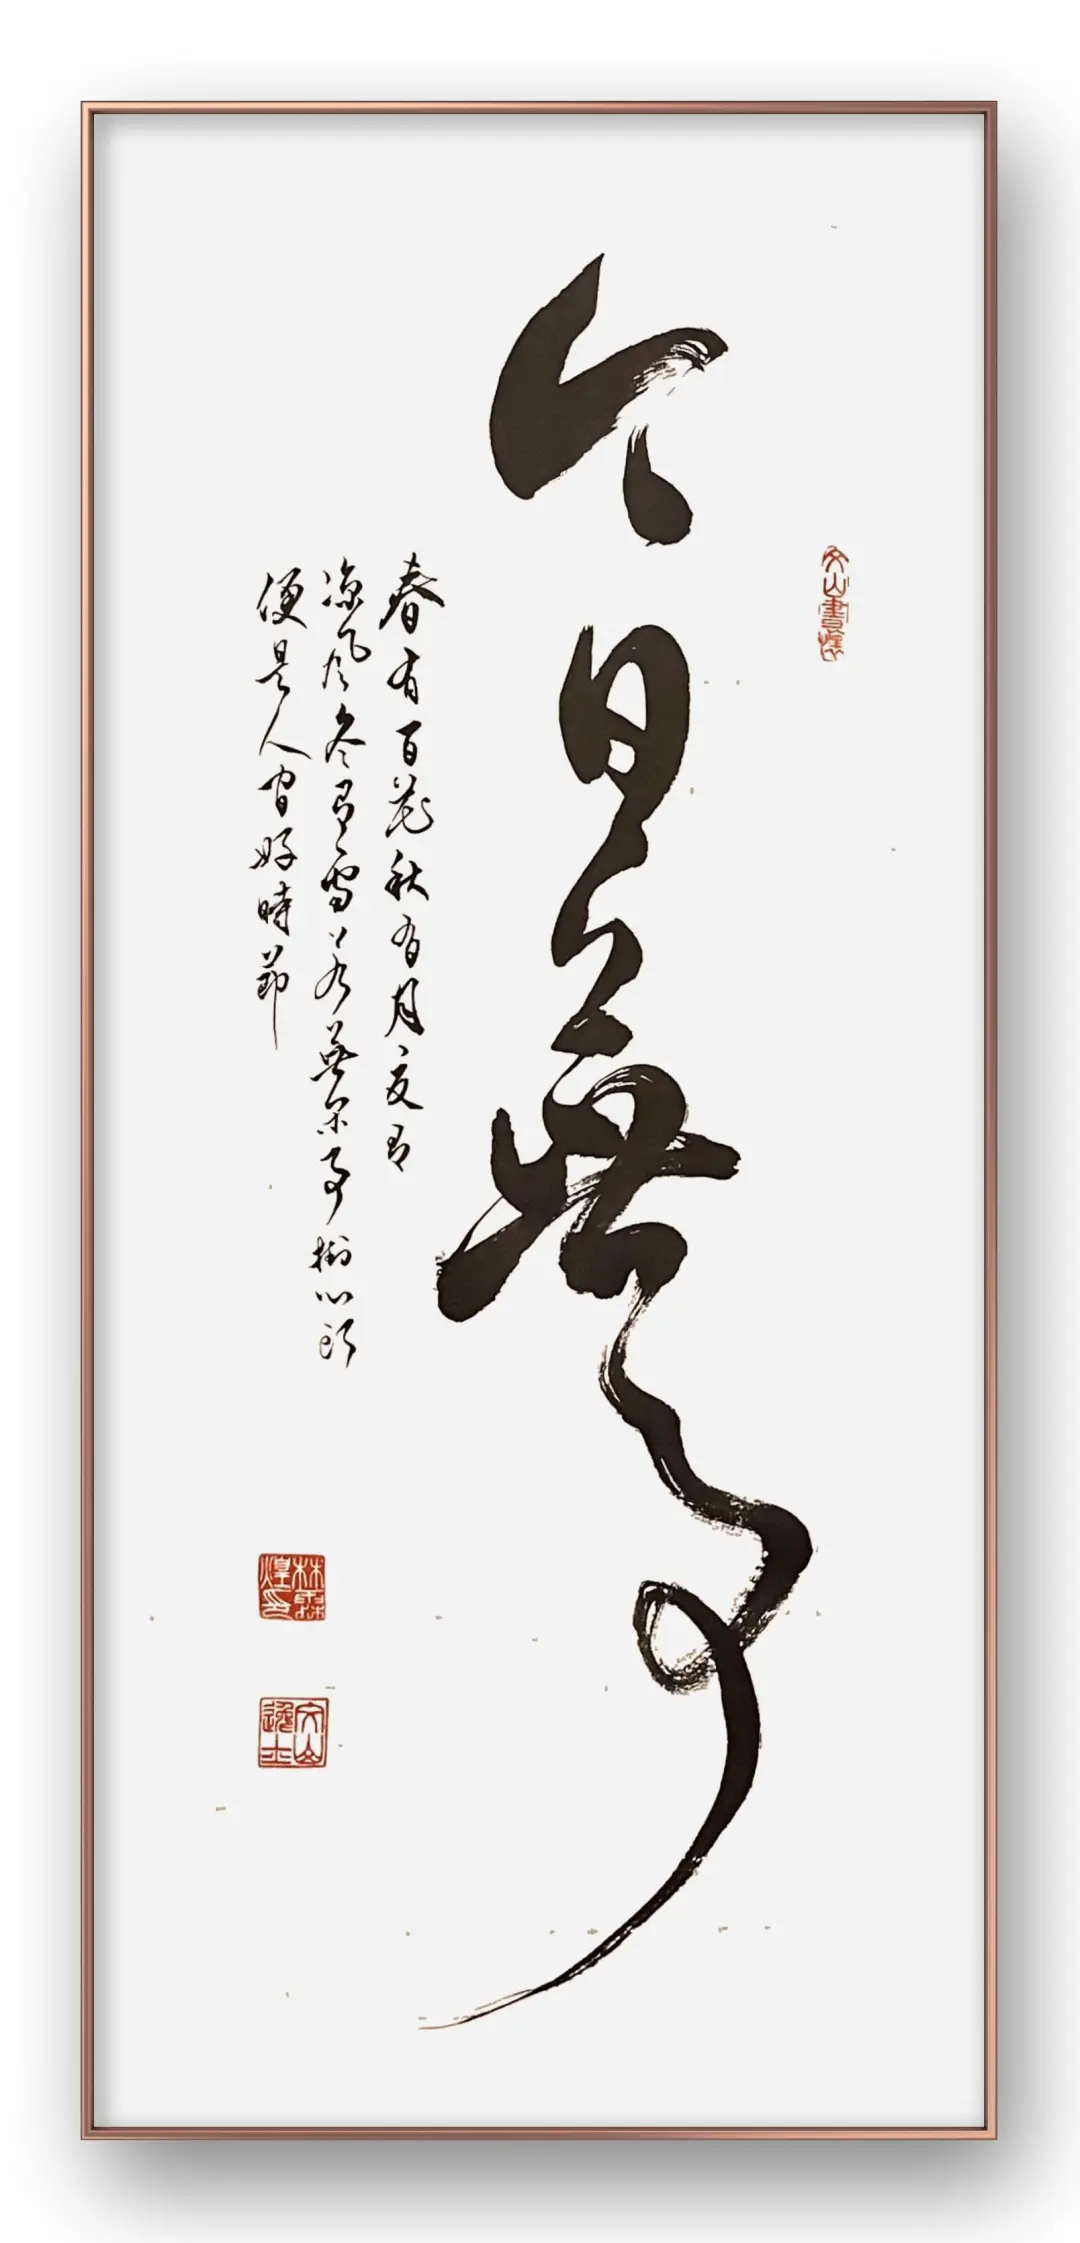 今日無事
春有百花秋有月夏有
涼風冬有雪若無閑事掛心頭
便是人間好時節
文山書懷
文山逸士